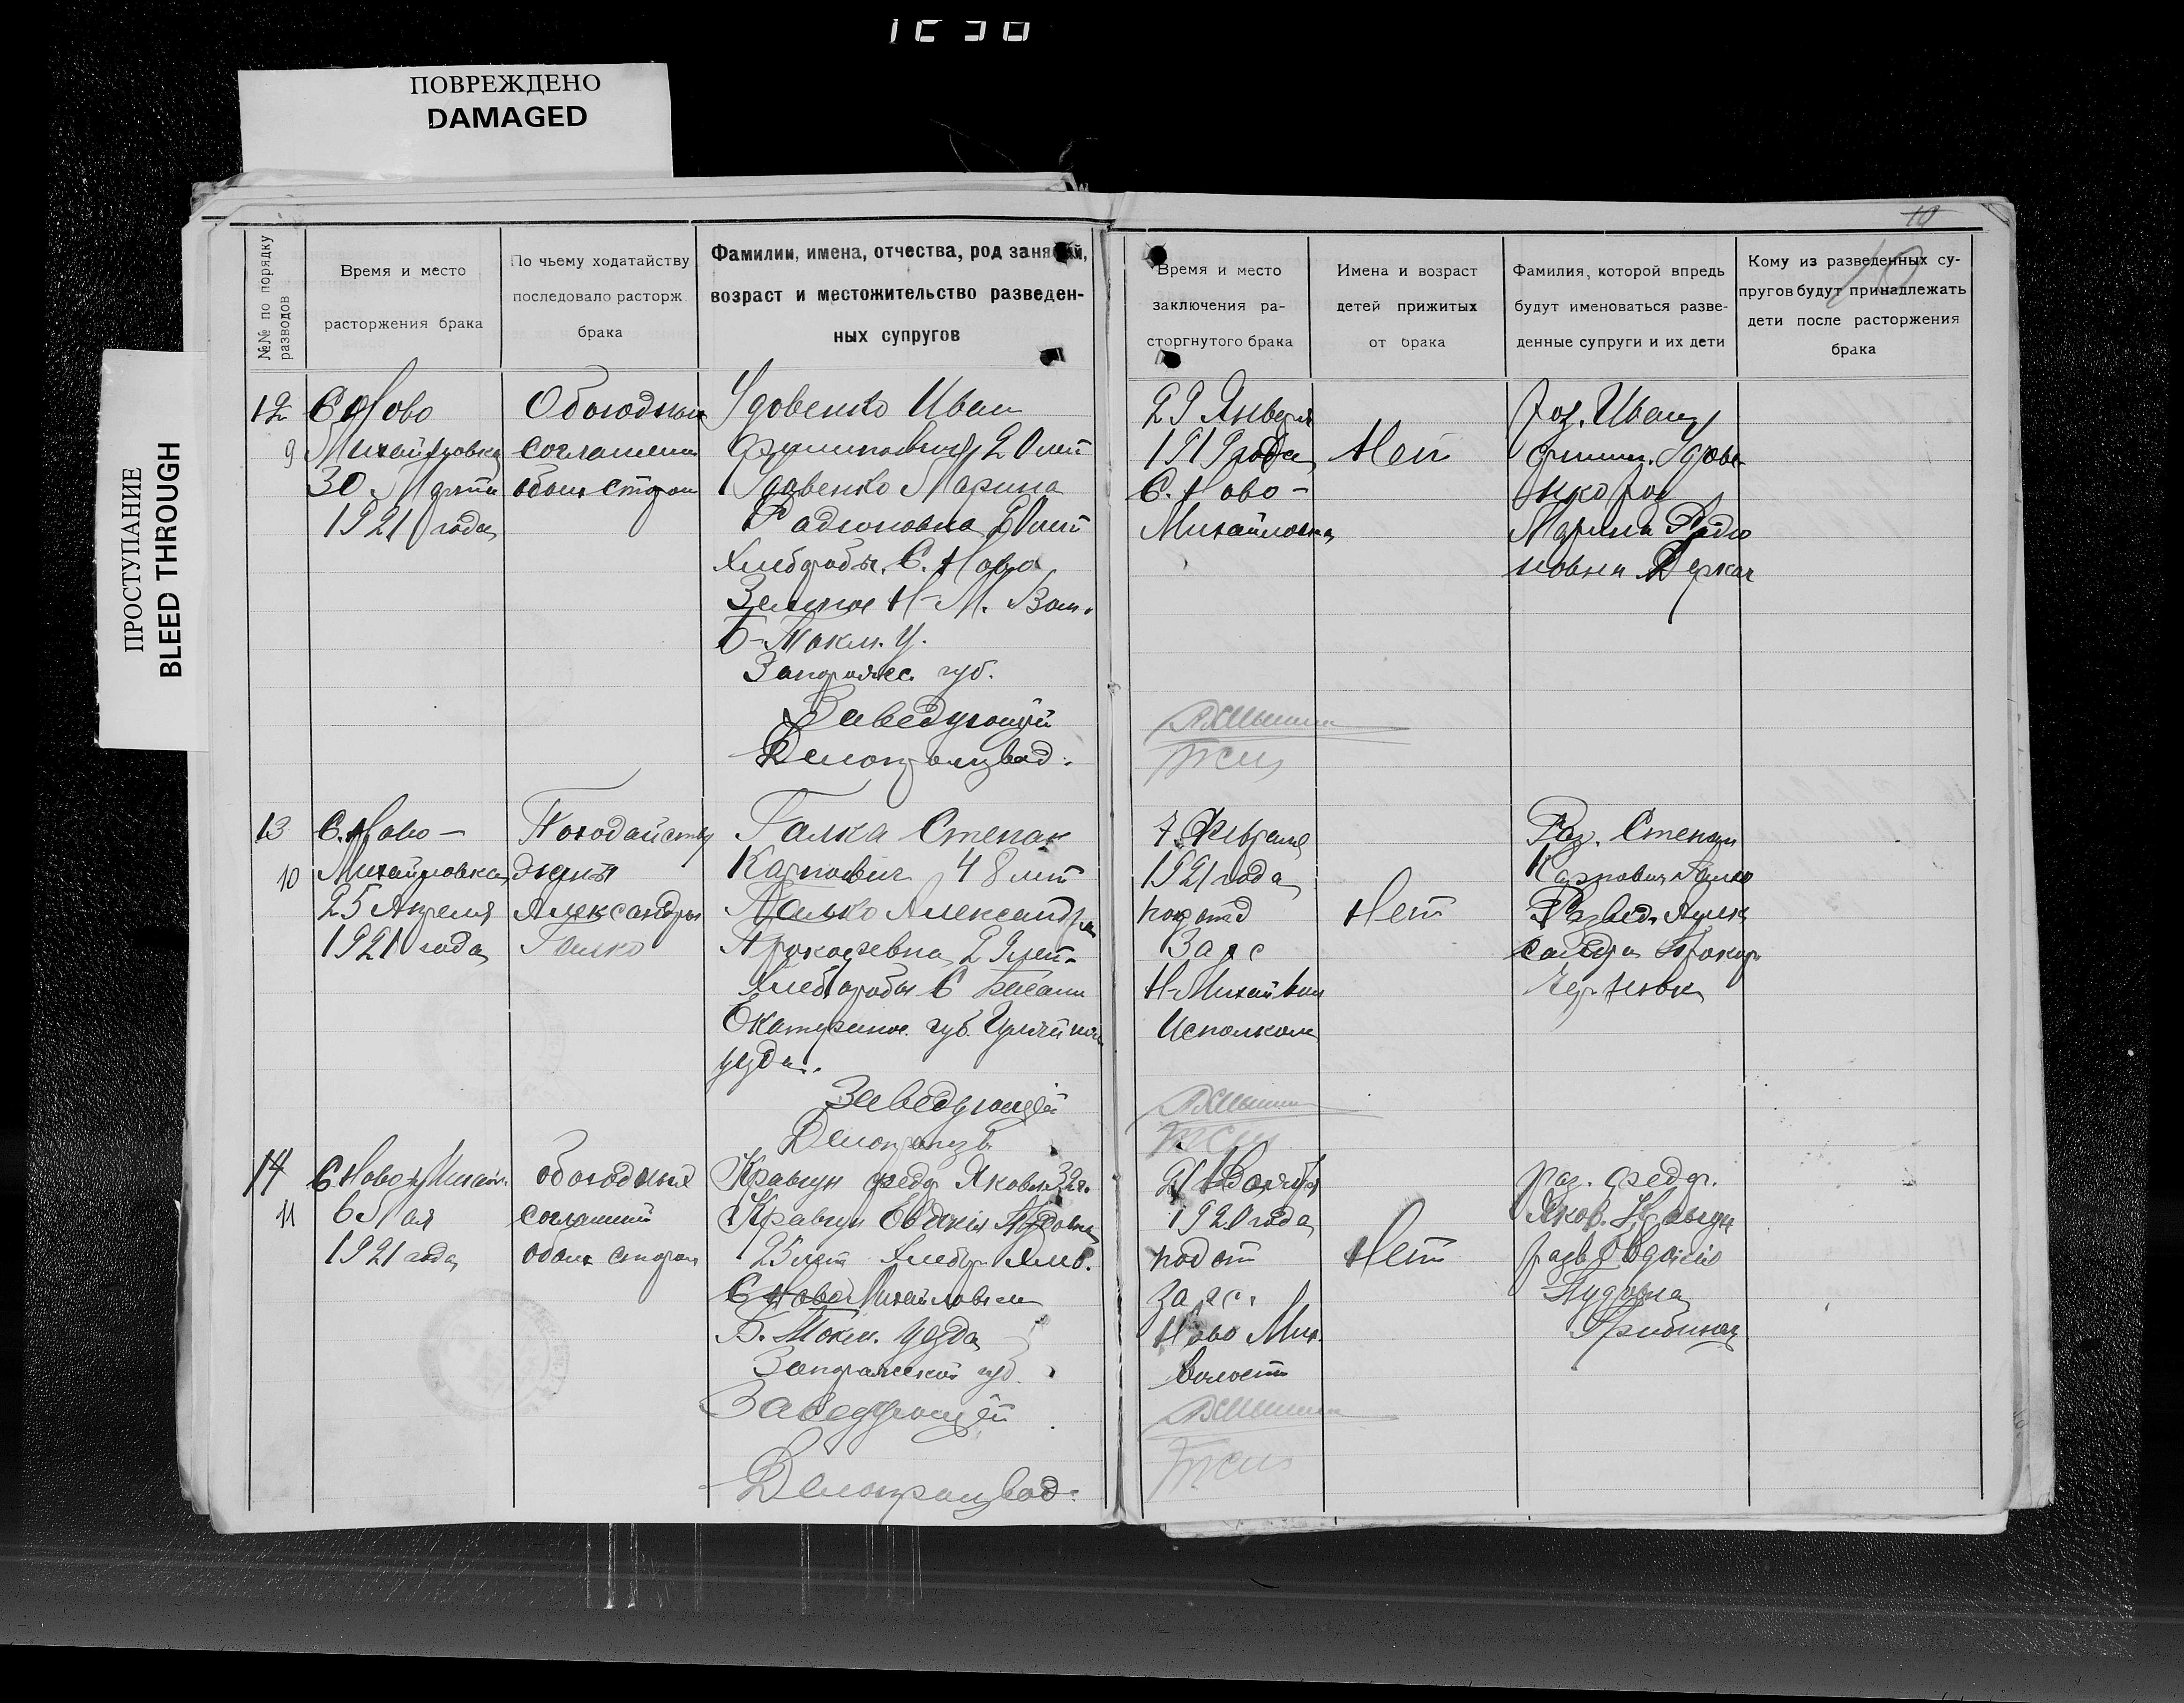 ПОВРЕЖДЕНО
DAMAGED
ПРОСТУПАНИЕ
BLEED THROUGH
10
№№ по порядку разводов
Время и место
расторжения брака
По чьему ходатайству
последовало расторж.
брака
Фамилии, имена, отчества, род занятий,
возраст и местожительство разведен-
ных супругов
Время и место
заключения ра-
сторгнутого брака
Имена и возраст
детей прижитых
от брака
Фамилия, которой впредь
будут именоваться разве-
денные супруги и их дети
Кому из разведенных су-
пругов будут принадлежать
дети после расторжения
брака
12
9
С. Ново
Михайловка
30 Марта
1921 года
Обоюдным
соглашении
обоих сторон
Удовенко Иван
20 лет
Удовенко Марина
Радионовна 20 лет
Хлеборобы. С. Ново
Н-М. Вол.
Б-Токм. У.
Запорожс. губ.
Заведующий
Делопроизвод.
29 Января
1919 года
С. Ново-
Михайловка
Нет
Раз. Иван
Филип. Удове-
нко раз
Марина Радио
новна Деркач
13
10
С. Ново-
Михайловка
25 Апреля
1921 года
По ходайству
жены
Александры
Галко
Галка Степан
Карпович 48 лет
Галько Александра
Прокофевна 29 лет.
Хлеборобы С
Екатеринос. губ.
уезда.
Заведующий
Делопроизв.
7 Февраля
1921 года
подотд
Загс
Н-Михайвки
Исполком
Нет
Раз. Степан
Карпович Галко
Развед. Алек
сандра Прокоф.
14
11
С Ново Михайл.
6 Мая
1921 года
обоюдный
соглашений
обоих сторон
Кравцун Федр Яковл. 32 г.
Кравцун Евдкия
25 лет Хлебор
С Ново Михайловки
Б. Токм. уезда
Запорожской губ.
Заведующий
Делопроизвод.
1920 года
подот
загс.
Ново Мих.
Волости
Нет
раз. Федор.
Яков. Кравцун
разв Евдокию